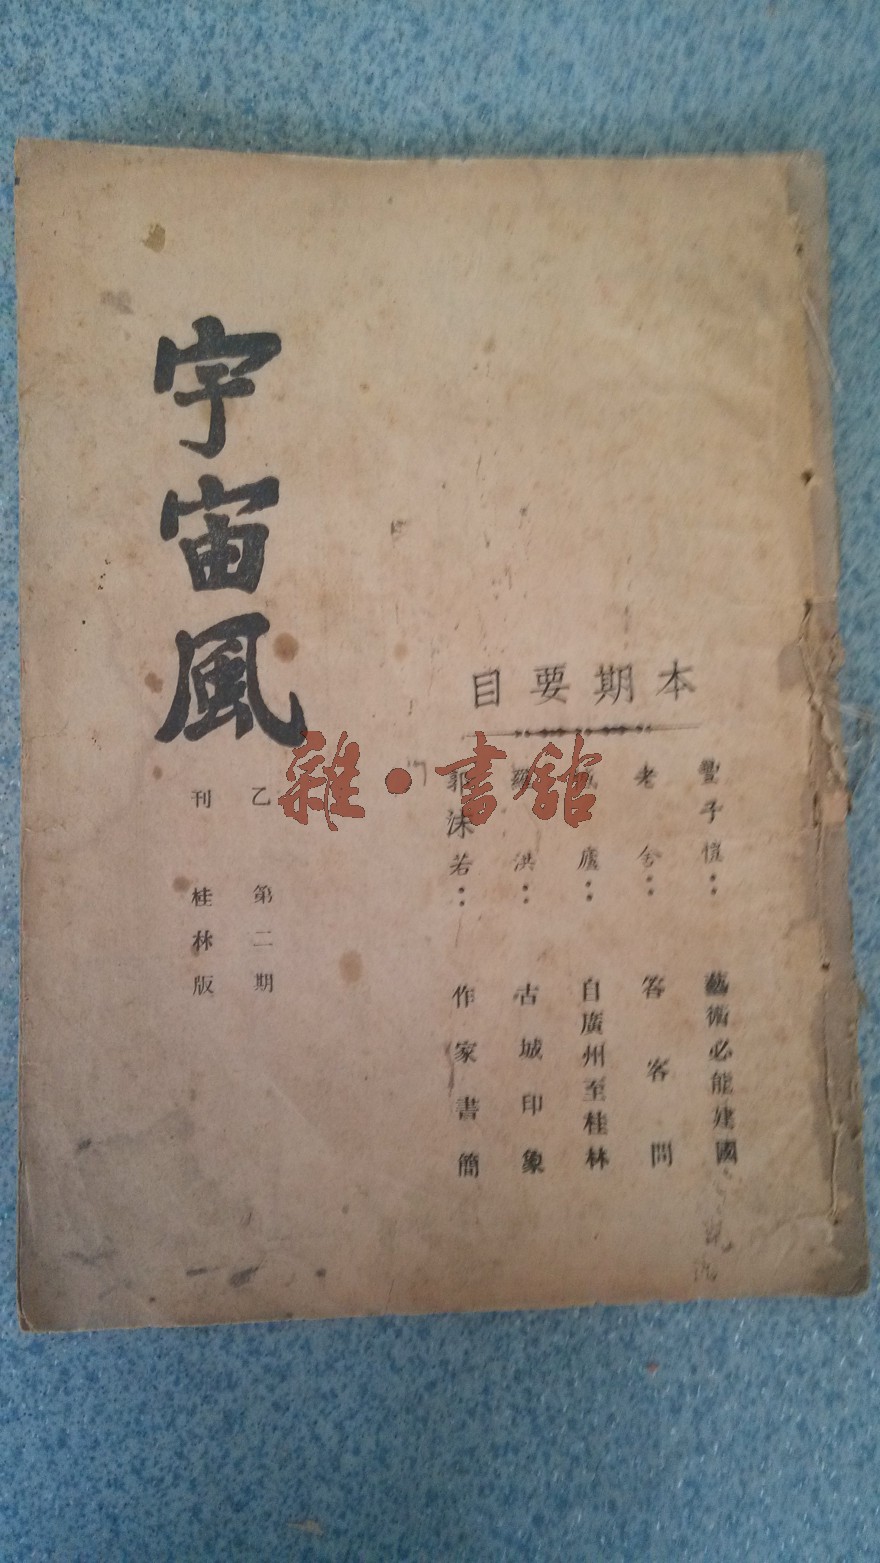 宇宙風
乙刊
第二期
桂林版
本期要目
豐子愷：藝術必能建國
老兮：答客問
廬：自廣州至桂林
羅洪：古城印象
郭沫若：作家書簡
雜·書館